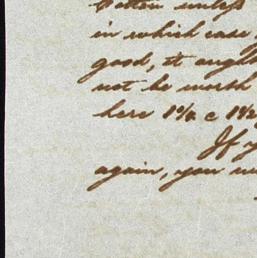 Cotton unless
in which case
good, it ought
not be worth
here 1⅛ c 1½
If y
again, you